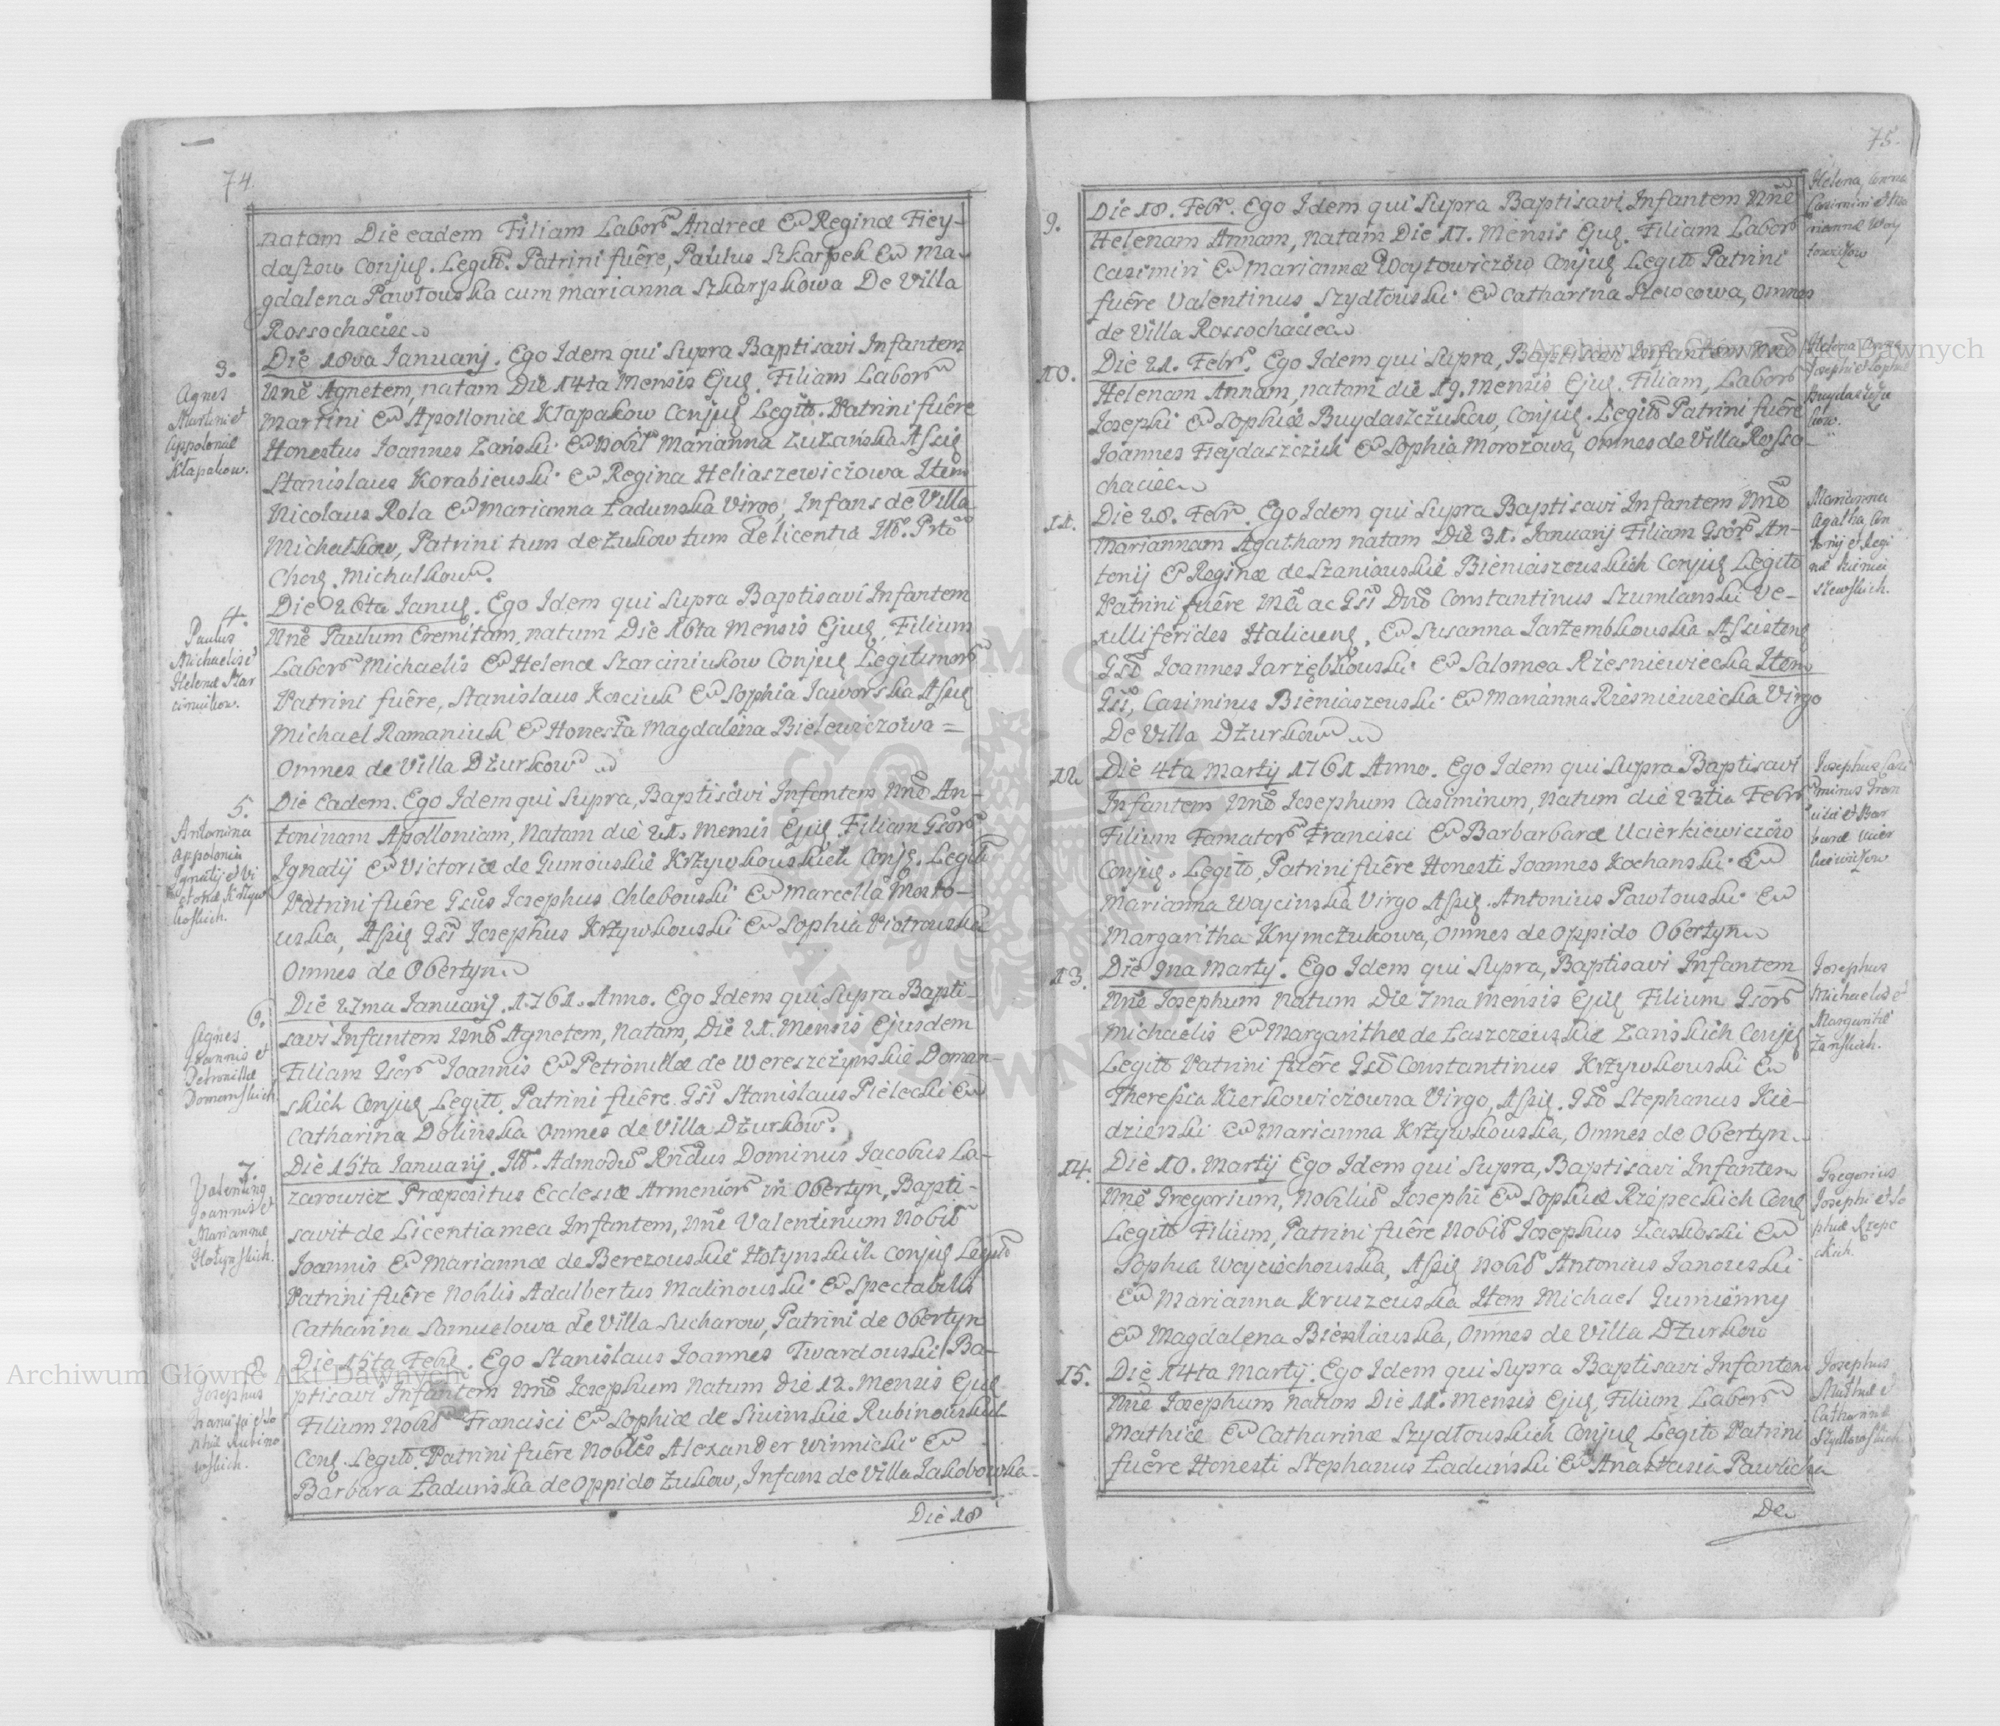 74.
natam Die eadem Filiam Labor. Andreæ Et Reginæ Fiey-
daszow Conjug. Legitt. Patrini fuêre, Paulus Szkarpek Et Ma-
gdalena Pawłouska cum Marianna Szkarpkowa De Villa
Rossochaciec
3.
Agnes
Martini et
Appoloniæ
Kłapakow.
Die 18va Januarij. Ego Idem qui Supra Baptisavi Infantem
Nnē Agnetem, natam Die 14ta Mensis Ejus. Filiam Labor.
Martini Et Apolloniæ Kłapakow Conjug Legitō. Patrini fuêre
Honestus Joannes Zański Et Nobis Marianna Zużańska Assis
Stanislaus Korabieuski Et Regina Heliaszewiczowa Item
Nicolaus Rola Et Marianna Ładunska Virgo, Infans de Villa
Michałkow, Patrini tum de Żukow tum de licentia
Michalkow.
4.
Paulus
Michaelis et
Helenæ Szar
ciniukow.
Die 26ta Janug. Ego Idem qui Supra Baptisavi Infantem
Nnē Paulum Eremitam, natum Die 16ta Mensis Ejus, Filium
Labor. Michaelis Et Helenæ Szarciniukow Conjug Legitimor.
Patrini fuêre, Stanislaus Kosciuk Et Sophia Jaworska Assis
Michael Romaniuk Et Honesta Magdalena Bielewiczowa =
Omnes de Villa Dżurkow
5.
Antonina
Appolonia
Ignatij et Vi
ctoriæ Krzyw
koskich.
Die Eadem. Ego Idem qui Supra, Baptisavi Infantem Nnē An-
toninam Apolloniam, Natam die 21. Mensis Ejus. Filiam Gsor.
Ignatij Et Victoriæ de Gumouskie Krzywkouskich Conjg. Legitt
Patrini fuêre Gsus Josephus Chlebouski Et Marcella Mosko-
uska, Assis Gsi Josephus Krzywkouski Et Sophia Piotrouska
Omnes de Obertyn
6.
Agnes
Joannis et
Petronillæ
Domanskich
Die 27ma Januarij. 1761. Anno. Ego Idem qui Supra Bapti-
savi Infantem Nnē Agnetem, Natam, Die 21. Mensis Ejusdem
Filiam Gsor. Joannis Et Petronillæ de Wereszczynskie Doman-
skich Conjug Legitt. Patrini fuêre Gsi Stanislaus Pielecki Et
Catharina Dolinska Omnes de Villa Dżurkow.
7.
Valentinus
Joannis et
Mariannæ
Hołynskich.
Die 15ta Januarij. Admodū Rndus Dominus Jacobus La-
zarowicz Præpositus Ecclesiæ Armenior. in Obertyn, Bapti-
savit de Licentia mea Infantem, Nnē Valentinum Nobis
Joannis Et Mariannæ de Berezouskie Hołynskich Conjug Legitō
Patrini fuêre Noblis Adalbertus Malinouski Et Spectabilis
Catharina Samuelowa de Villa Sucharow, Patrini de Obertyn
8
Josephus
Francisci et So
phiæ Rubino
wskich.
Die 15ta Febr. Ego Stanislaus Joannes Twardouski Ba-
ptisavi Infantem Nnē Josephum Natum Die 12. Mensis Ejus
Filium Nobis Francisci Et Sophiæ de Siwinskie Rubinouskich
Conj. Legitō. Patrini fuêre Nobles Alexander Winnicki Et
Barbara Ładuńska de Oppido Żukow, Infans de Villa Jakobowka
Die 18
75.
9.
Die 18. Febr. Ego Idem qui Supra Baptisavi Infantem Nnē
Helenam Annam, Natam Die 17. Mensis Ejus. Filiam Labor.
Casimiri Et Mariannæ Woytowiczow Conjug Legitō Patrini
fuêre Valentinus Szydłouski Et Catharina Slewcowa, Omnes
de Villa Rossochaciec
Helena, Anna
Casimiri et Ma
riannæ Woy
towiczow
10.
Die 21. Febr. Ego Idem qui Supra, Baptisavi Infantem Nnē
Helenam Annam, natam die 19. Mensis Ejus. Filiam, Labor.
Josephi Et Sophiæ Buydaszczukow, Conjug. Legitō Patrini fuêre
Joannes Fieydaszczuk Et Sophia Morozowa, Omnes de Villa Rosso
chaciec
Helena Anna
Josephi et Sophiæ
Buydaszczu
kow.
11.
Die 28. Febr. Ego Idem qui Supra Baptisavi Infantem Nnē
Mariannam Agatham natam Die 31. Januarij Filiam Gsor. An-
tonij Et Reginæ de Szaniauskie Bieniaszeuskich Conjug Legitō
Patrini fuêre Mā ac Gsi Dnō Constantinus Szumlanski Ve-
xilliferides Haliciens, Et Susanna Jarzembkouska Assistens
Gsi Joannes Jarzębkouski Et Salomea Rzesniewiecka Item
Gsi, Casimirus Bieniaszeuski Et Marianna Rzesniewiecka Virgo
De Villa Dżurkow
Marianna
Agatha, An
tonij et Regi
næ Bienia
szewskich.
12
Die 4ta Martij 1761 Anno. Ego Idem qui Supra Baptisavi
Infantem Nnē Josephum Casimirum, Natum die 23tia Febr.
Filium Famator. Francisci Et Barbarbaræ Ucierkiewiczow
Conjug. Legitō, Patrini fuêre Honesti Joannes Kochanski Et
Marianna Waycinska Virgo Assis. Antonius Pawłouski Et
Margaritha Krymczukowa, Omnes de Oppido Obertyn
Josephus Casi
mirus Fran
cisci et Bar
baræ Ucier
kiewiczow
13.
Die 9na Martij. Ego Idem qui Supra, Baptisavi Infantem
Nnē Josephum Natum Die 7ma Mensis Ejus Filium Gsor.
Michaelis Et Margarithæ de Łaszczeuskie Zanskich Conjug
Legitō Patrini fuêre Gsi Constantinus Krzywkouski Et
Theressia Kierkowiczowna Virgo, Assis. Gsō Stephanus Kie-
dzierski Et Marianna Krzywkouska, Omnes de Obertyn
Josephus
Michaelis et
Margarithæ
Zanskich.
14.
Die 10. Martij Ego Idem qui Supra, Baptisavi Infantem
Nnē Gregorium, Nobiliū Josephi Et Sophiæ Rzepeckich Conj
Legitō Filium, Patrini fuêre Nobis Josephus Łaskoski Et
Sophia Woyciechouska, Assis Nobis Antonius Janouski
Et Marianna Kruszeuska Item Michael Gumienny
Et Magdalena Bieniauska, Omnes de Villa Dżurkow
Gregorius
Josephi et So
phiæ Rzepe
ckich.
15.
Die 14ta Martij. Ego Idem qui Supra Baptisavi Infantem
Nnē Josephum natum Die 11. Mensis Ejus. Filium Labor.
Mathiæ Et Catharinæ Szydłouskich Conjug Legitō Patrini
fuêre Honesti Stephanus Ładuński Et Anastasia Pawlicha
Josephus
Mathiæ et
Catharinæ
Szydłowskich
De
Archiwum Główne Akt Dawnych
Archiwum Główne Akt Dawnych
ARCHIWUM GŁÓWNE AKT DAWNYCH